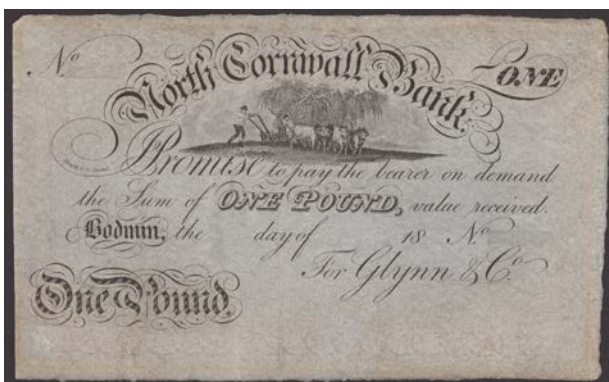 No ONE
North Cornwall Bank.
Promise to pay the bearer on demand
the Sum of ONE POUND, value received.
Bodmin, the day of 18 No
For Glynn & Co.
One Pound.